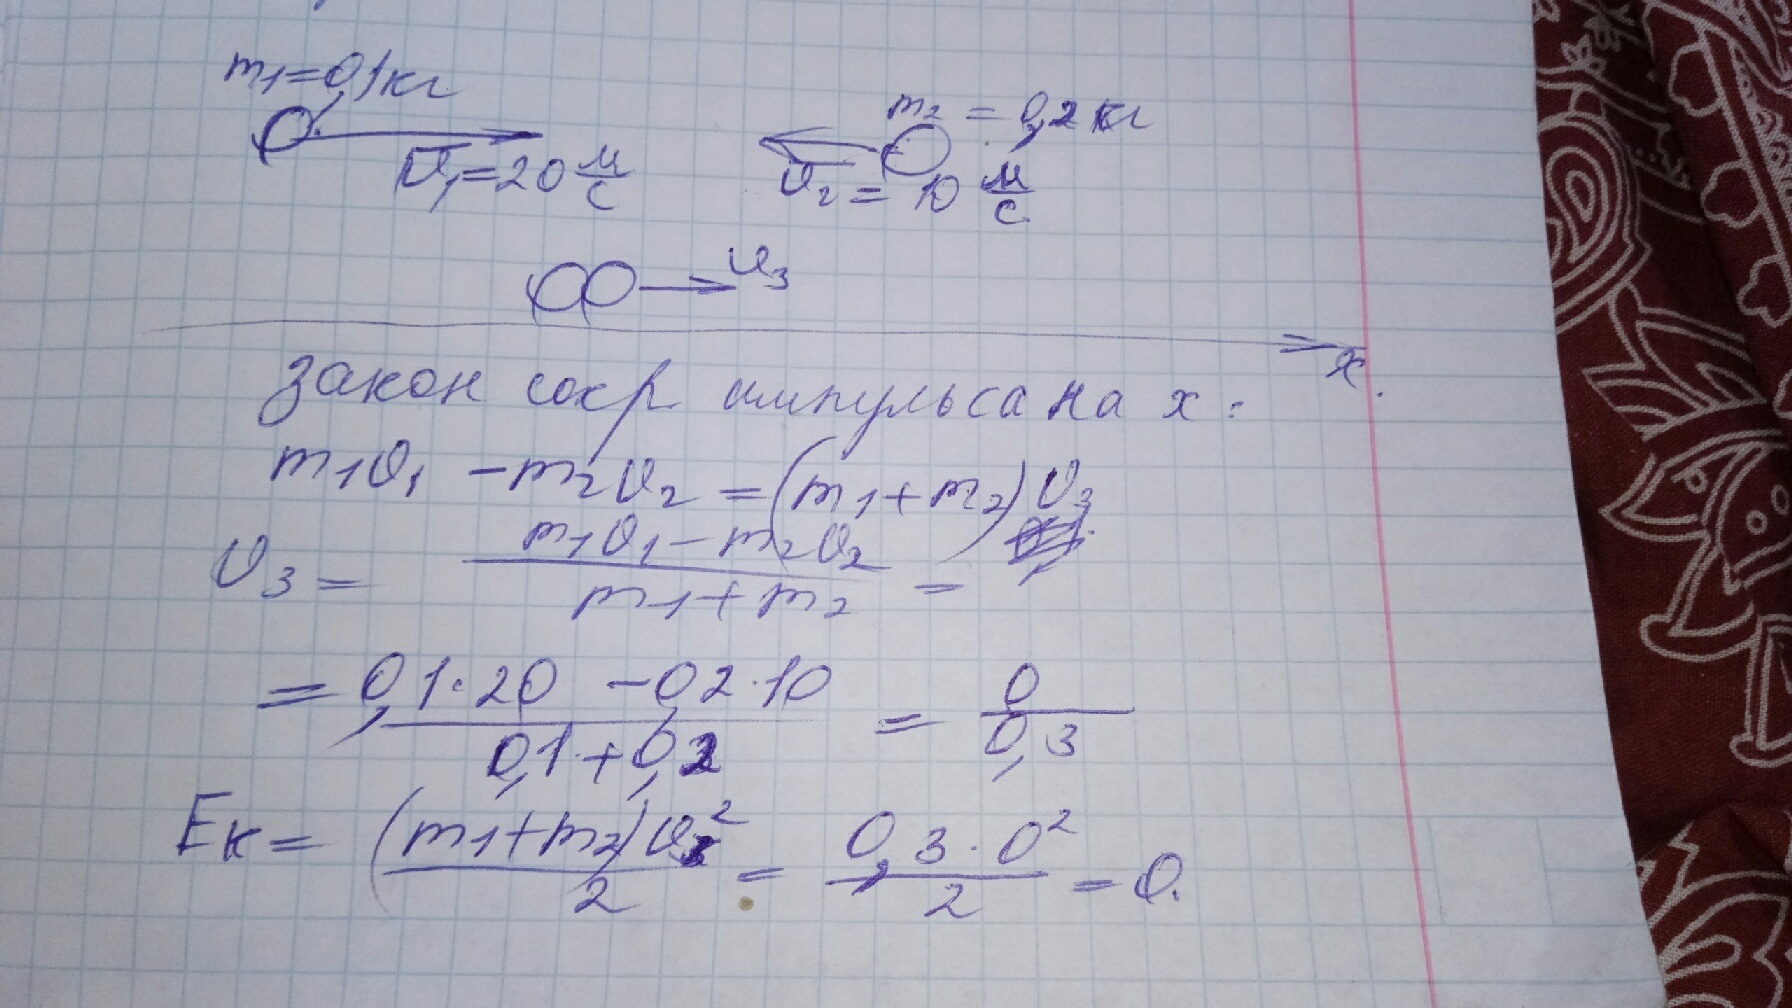 m₁=0,1кг
m₂ = 0,2 кг
v₁=20 м/с
v₂ = 10 м/с
v₃
x
закон сохр импульса на x:
m₁v₁ - m₂v₂ = (m₁+m₂)v₃
v₃ = (m₁v₁-m₂v₂)/(m₁+m₂) =
= (0,1·20 - 0,2·10)/(0,1+0,2) = 0/0,3
Eк = (m₁+m₂)v₃²/2 = 0,3·0²/2 = 0.